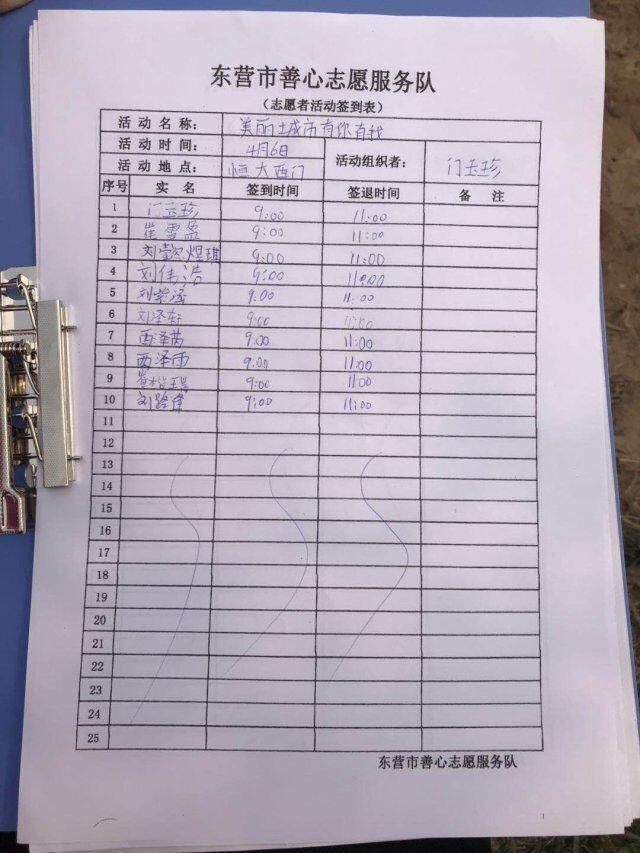 东营市善心志愿服务队
（志愿者活动签到表）
活动名称： 美丽城市有你有我
活动时间： 4月6日 活动组织者： 门玉珍
活动地点： 恒大西门
序号 实名 签到时间 签退时间 备注
1 门玉珍 9:00 11:00
2 崔雪盈 9:00 11:00
3 刘 煜琪 9:00 11:00
4 刘伟浩 9:00 11:00
5 刘 9:00 11:00
6 刘泽轩 9:00 11:00
7 西泽芮 9:00 11:00
8 西泽雨 9:00 11:00
9 9:00 11:00
10 刘路伟 9:00 11:00
11
12
13
14
15
16
17
18
19
20
21
22
23
24
25
东营市善心志愿服务队
1